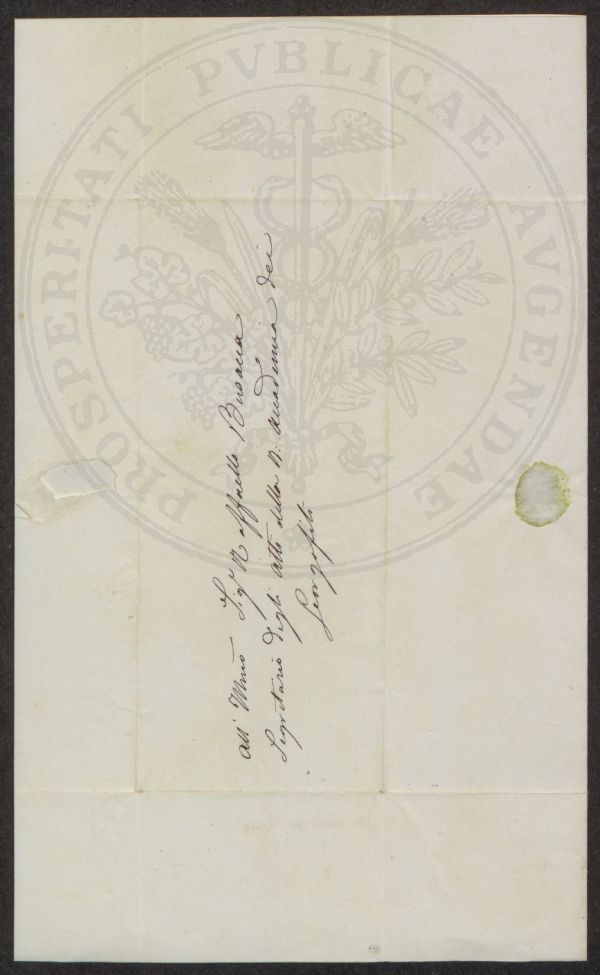 PROSPERITATI PVBLICAE AVGENDAE
All' Illmo Sigr Raffaello Busacca
Segretario degli Atti della R. Accademia dei
Georgofili